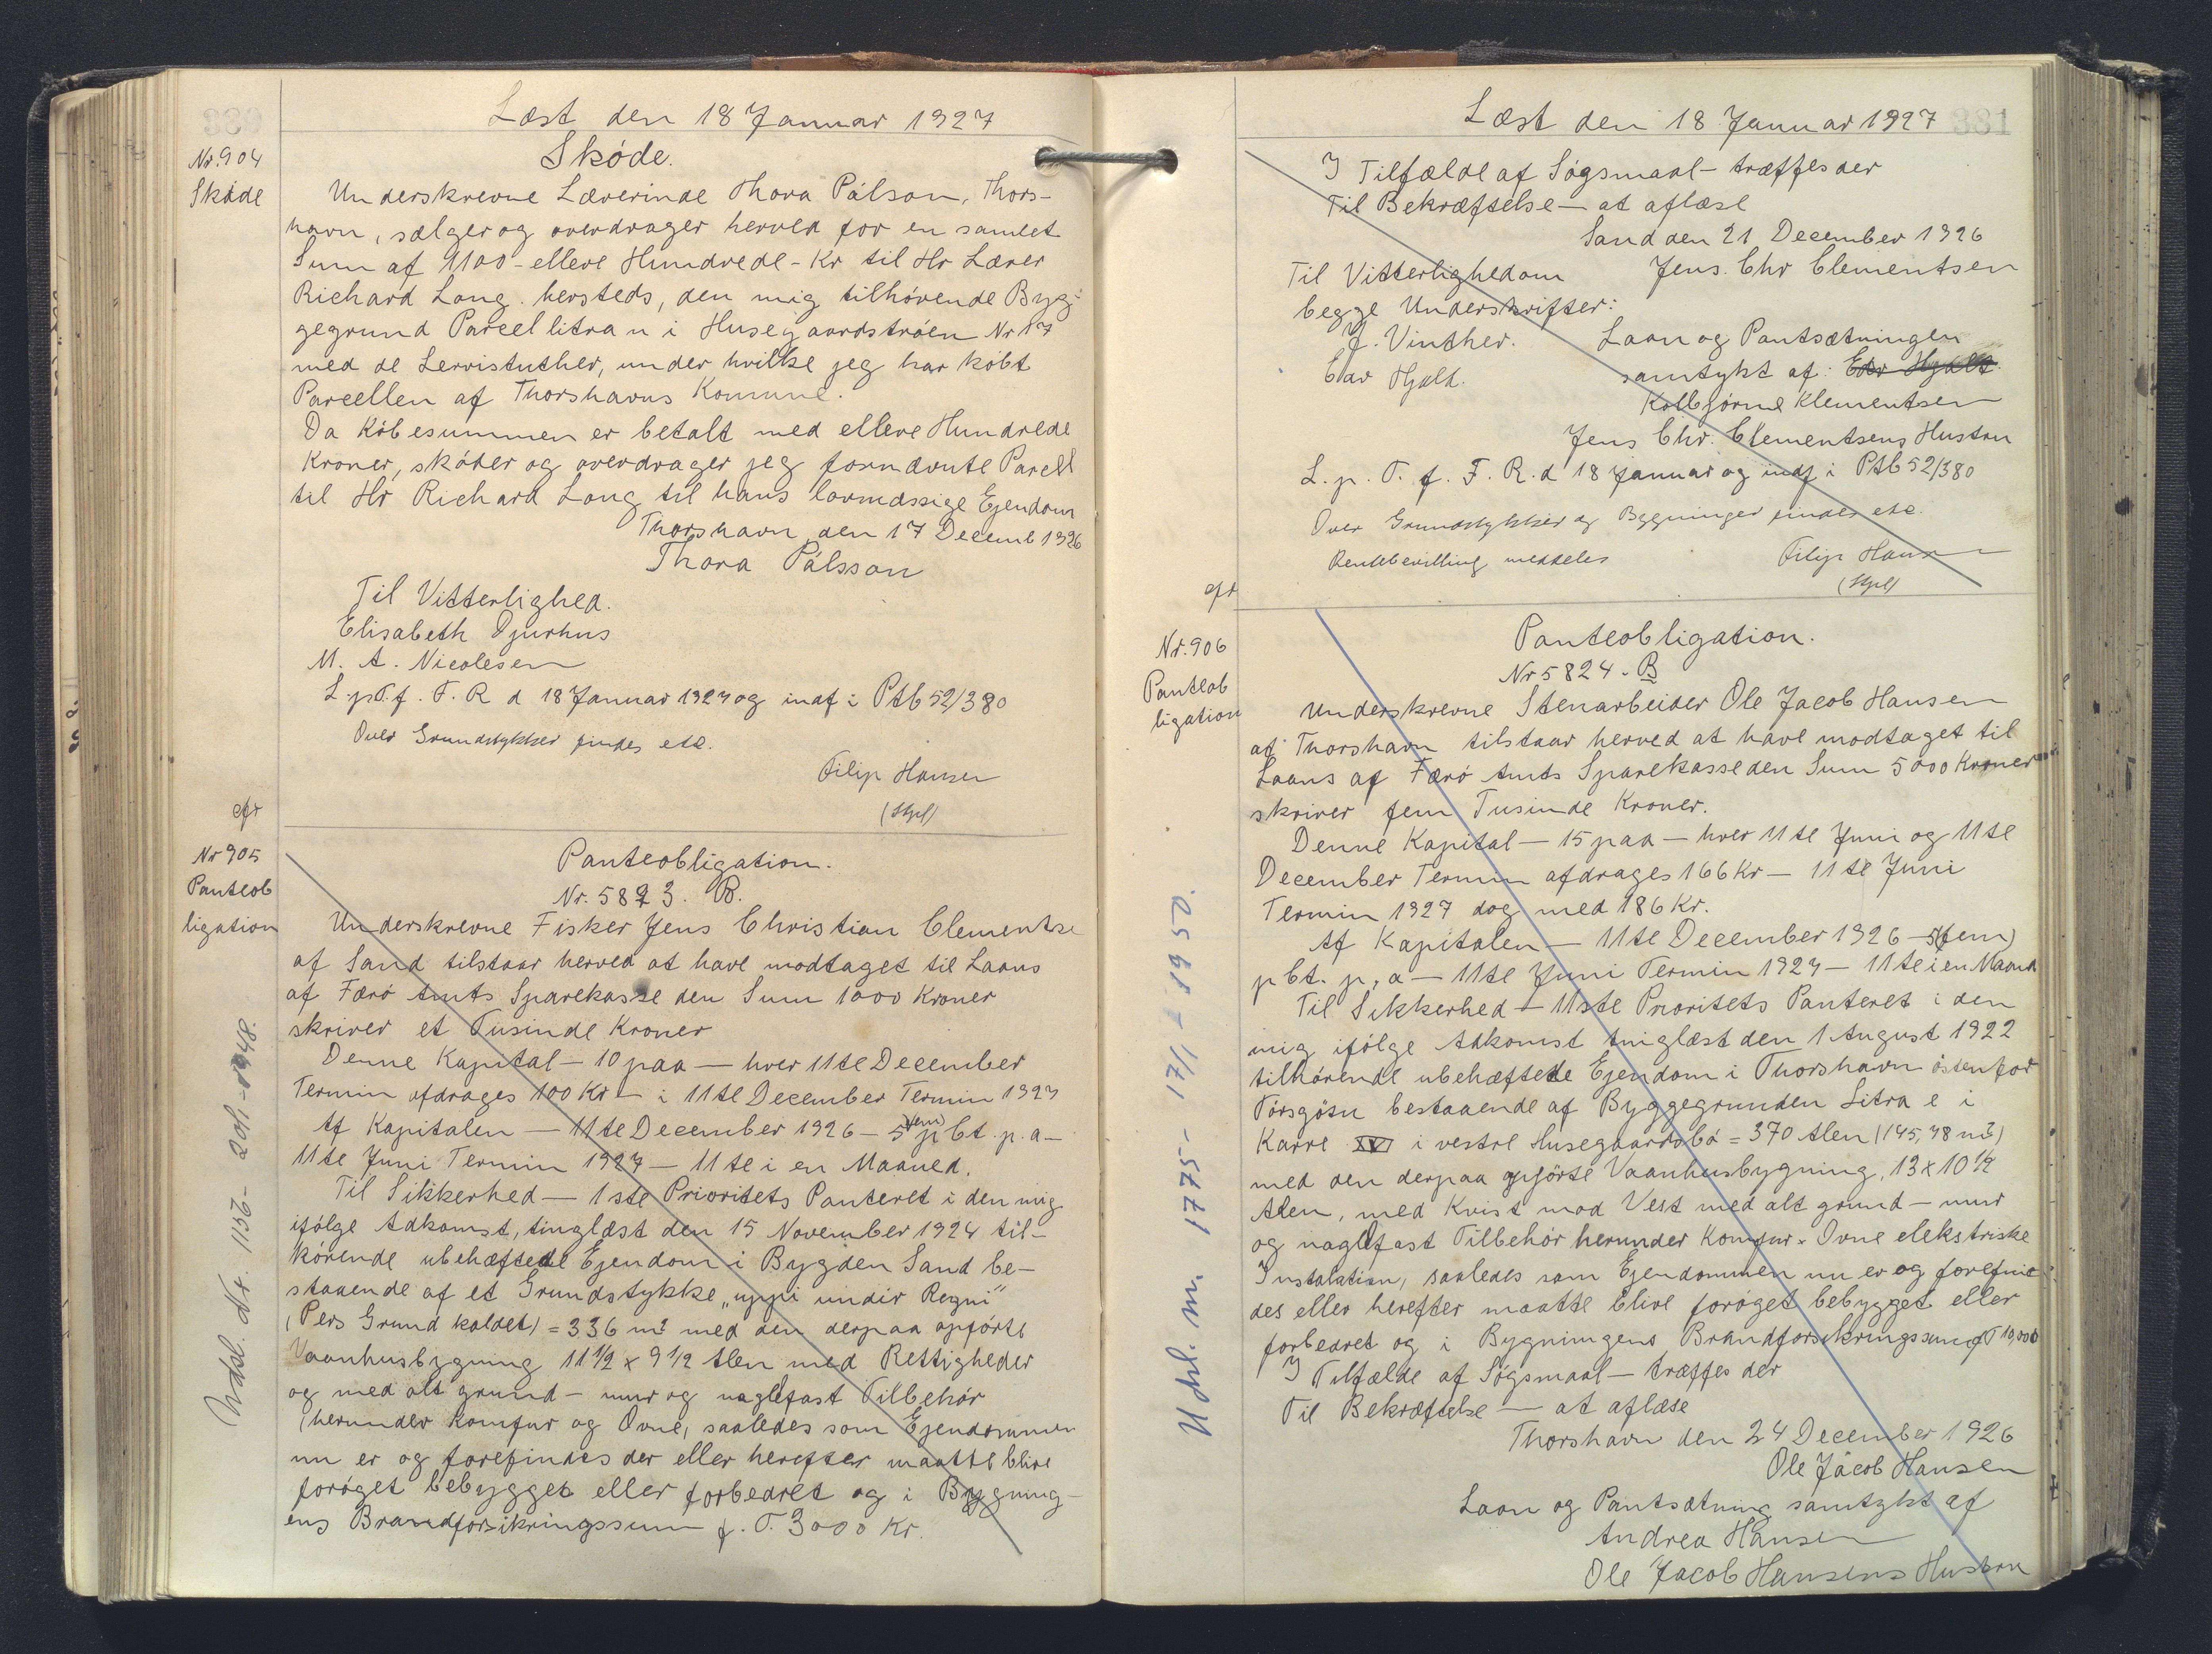 Læst den 18 Januar 1927
Nr. 904
Skøde
Skøde.
Underskrevne Lærerinde Thora Pálson, Thors-
havn, sælger og overdrager herved for en samlet
Sum af 1100 - elleve Hundrede - Kr til Hr Lærer
Richard Long hersteds, den mig tilhörende Byg-
gegrund Parcel litra n i Husegaardströen Nr 17
med de Servistuther, under hvilke jeg har köbt
Parcellen af Thorshavns Komune.
Da Köbesummen er betalt med elleve Hundrede
Kroner, sköder og overdrager jeg fornævnte Parcel
til Hr Richard Long til hans lovmæssige Ejendom
Thorshavn, den 17 Decemb 1926
Thora Pálsson
Til Vitterlighed.
Elisabeth Djurhus
M. A. Nicolesen
L. p. T. f. F. R d 18 Januar 1927 og indf i Ptb 52/380
Over Grundstykker findes etc.
Filip Hansen
(Stpl)
cfr
Nr 905
Panteob
ligation
Panteobligation.
Nr. 5823. B.
Underskrevne Fisker Jens Christian Clementse
af Sand tilstaar herved at have modtaget til Laans
af Færö Amts Sparekasse den Sum 1000 Kroner
skriver et Tusinde Kroner
Denne Kapital — 10 paa — hver 11te December
Termin afdrages 100 Kr — i 11te December Termin 1927
Af Kapitalen — 11te December 1926 — 5 (fem) p Ct. p. a —
11te Juni Termin 1927 — 11te i en Maaned.
Til Sikkerhed — 1ste Prioritets Panteret i den mig
ifølge Adkomst, tinglæst den 15 November 1924 til-
hörende ubehæftede Ejendom i Bygden Sand be-
staaende af et Grundstykke „uppi undir Regni"
(Pers Grund kaldet) = 336 m² med den derpaa opförte
Vaanhusbygning 11 1/2 x 9 1/2 Alen med Rettigheder
og med alt grund - mur og naglefast Tilbehör
(herunder Komfur og Ovne, saaledes som Ejendommen
nu er og forefindes der eller herefter maatte blive
foröget bebygget eller forbedret og i Bygning-
ens Brandforsikringssum f. T. 3000 Kr.
Udsl. Nr. 1152 - 20/1 - 1948.
Læst den 18 Januar 1927
381
I Tilfælde af Sögsmaal — træffes der
Til Bekræftelse — at aflæse
Sand den 21 December 1926
Til Vitterlighed om Jens. Chr Clementsen
begge Underskrifter:
J. Vinther. Laan og Pantsætningen
Edv Hjalt. samtykt af: Edv Hjalt
Kolbjörne Klementsen
Jens Chr. Clementsens Hustru
L. p. T. f. F. R. d 18 Januar og indf i Ptb 52/380
Over Grundstykker og Bygninger findes etc.
Rentebevilling meddeles Filip Hansen
(Stpl)
cfr
Nr. 906
Panteob
ligation
Panteobligation.
Nr 5824. B
Underskrevne Stenarbeider Ole Jacob Hansen
af Thorshavn tilstaar herved at have modtaget til
Laans af Færö Amts Sparekasse den Sum 5000 Kroner
skriver fem Tusinde Kroner.
Denne Kapital — 15 paa — hver 11te Juni og 11te
December Termin afdrages 166 Kr — 11te Juni
Termin 1927 dog med 186 Kr.
Af Kapitalen — 11te December 1926 — 5 (fem)
p Ct. p, a — 11te Juni Termin 1927 — 11te i en Maaned
Til Sikkerhed — 1ste Prioritets Panteret i den
mig ifölge Adkomst tinglæst den 1 August 1922
tilhörende ubehæftede Ejendom i Thorshavn östenfor
Tórsgötu bestaaende af Byggegrunden Litra e i
Karre XV i vestre Husegaardsbö = 370 Alen (145,78 m²)
med den derpaa opförte Vaanhusbygning, 13 x 10 1/2
Alen, med Kvist mod Vest med alt grund — mur
og naglefast Tilbehör herunder Komfur - Ovne elekstriske
Instalation, saaledes som Ejendommen nu er og forefin-
des eller herefter maatte blive foröget bebygget eller
forbedret og i Bygningens Brandforsikringssum f T 10,000
I Tilfælde af Sögsmaal — træffes der
Til Bekræftelse — at aflæse
Thorshavn den 24 December 1926
Ole Jácob Hansen
Laan og Pantsætning samtykt af
Andrea Hansen
Ole Jacob Hansens Hustru
Udsl. m. 1775 - 17/1 - 1950.